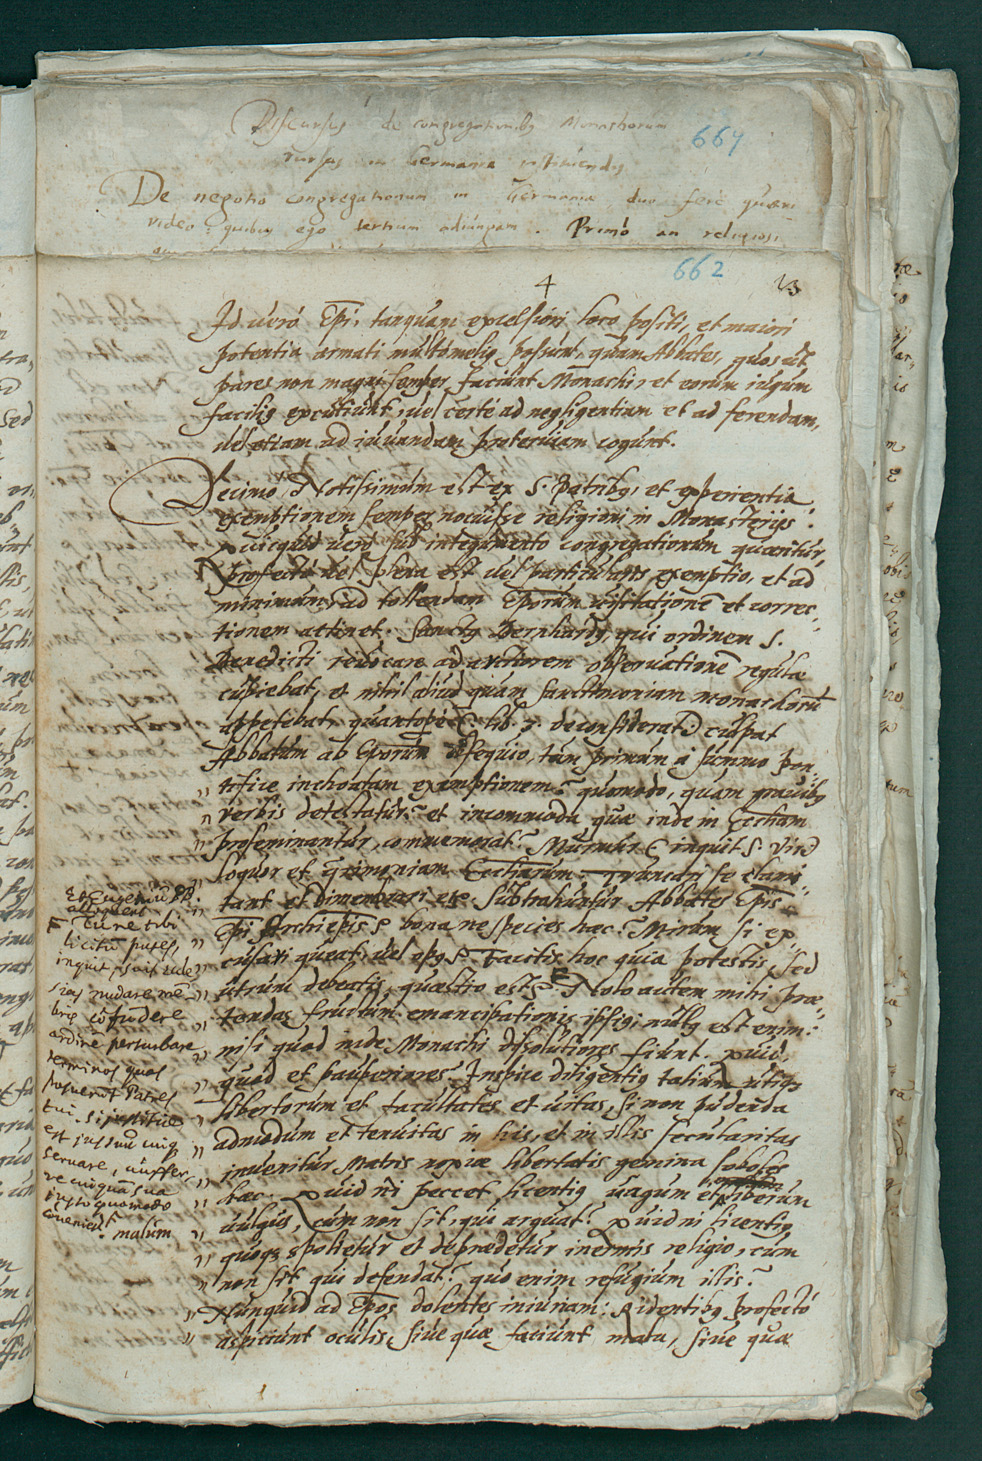 Discursus de congregationibus Monachorum
rursus in Germania instituendis
664
De negotio congregationum in Germania duo fere quæri
video: quibus ego tertium adiungam. Primò an religiosi
662
4
Id verò Epi, tanquam excelsiori loco positi, et maiori
potentia armati multò melius possunt, quàm Abbates, quos ut
pares non magni semper faciunt Monachi, et eorum iugum
facilius excutiunt, vel certè ad negligentiam et ad ferendam,
vel etiam ad iuuandam proteruiam cogunt.
Decimò Notissimum est ex S. Patribus, et experientia
exemptionem semper nocuisse religioni in Monasterijs:
Quicquid verò sub integumento congregationum quæritur,
profectò vel plena est vel particularis exemptio, et ad
minimum ad tollendam Eporum visitationē et correc-
tionem attinet. Sanctus Bernhardus, qui ordinem S.
Benedicti reuocare ad arctiorem obseruationē regulæ
cupiebat, et nihil aliud quàm sanctimoniam monachorū
appetebat, quantopere lib. 3. de considerat. culpat
Abbatum ab Eporum obsequio, tùm primùm à summo Pon-
tifice inchoatam exemptionem? quomodo, quàm grauibus
verbis detestatur? et incommoda quæ inde in Ecclīam
proseminantur, commemorat? Murmur (inquit S. Vir)
loquor et q̄rimoniam Ecclīarum. Truncari se clami-
tant et dimembrari etc. Subtrahuntur Abbates Epīs
Epi Archiepīs etc. bona ne species hæc? Mirum si ex-
cusari queat vel opus etc. Factitis hoc quia potestis, sed
utrum debeatis, quæstio est etc. F Nolo autem mihi præ-
tendas fructum emancipationis ipsius; nullus est enim:
nisi quod inde Monachi dissolutiores fiunt. Quid,
quòd et pauperiores? Inspice diligentius talium ubiq;
libertorum et facultates et vitas, si non pudenda
admodum et tenuitas in his, et in illis secularitas
inuenitur Matris nopiæ libertatis gemina soboles
hæc. Quid ni peccet licentius vagum et liberum
vulgus, cùm non sit, qui arguat? Quid ni licentius
quoq; spolietur et deprædetur inermis religio, cùm
non sit qui defendat? quò enim refugium illis?
Nunquid ad Epos dolentes iniuriam: Ridentibus profectò
aspiciunt oculis, siue quæ faciunt mala, siue quæ
Et Eugeniū PP.
alloquens
F Tu ne tibi
licitū putes,
inquit, suis
Ecclesias mutilare mē-
bris, cōfundere
ordinē perturbare
terminos quos
posuerūt Patres
tui. Si iustitiæ
est ius suū cuiq;
seruare, auffer-
re cuiquā sua
iusto quomodo
cōueniet?
malum